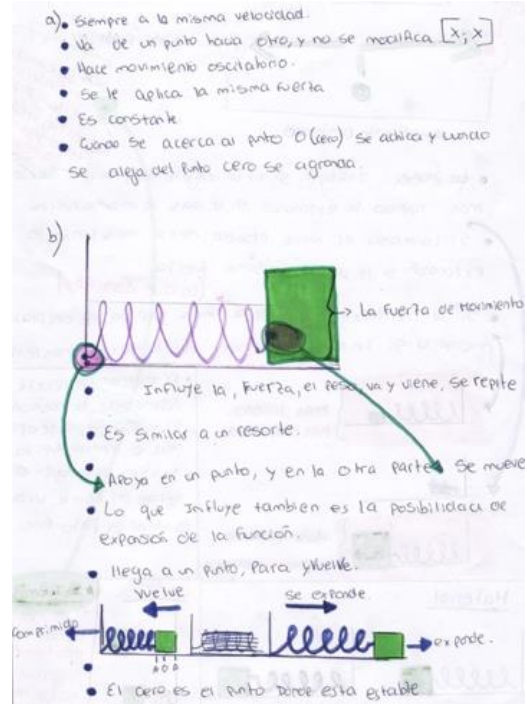 a) • Siempre a la misma velocidad.
• Va de un punto hacia otro, y no se modifica [x; x]
• Hace movimiento oscilatorio.
• Se le aplica la misma fuerza
• Es constante
• Cuando se acerca al punto 0 (cero) se achica y cuando
se aleja del punto cero se agranda.
b)
→ La Fuerza de Movimiento
• Influye la, fuerza, el peso, va y viene, se repite
• Es similar a un resorte.
• Apoya en un punto, y en la otra parte se mueve
• Lo que Influye tambien es la posibilidad de
expansión de la función.
• llega a un punto, para y vuelve.
vuelve se expande
comprimido expande.
• El cero es el punto donde esta estable